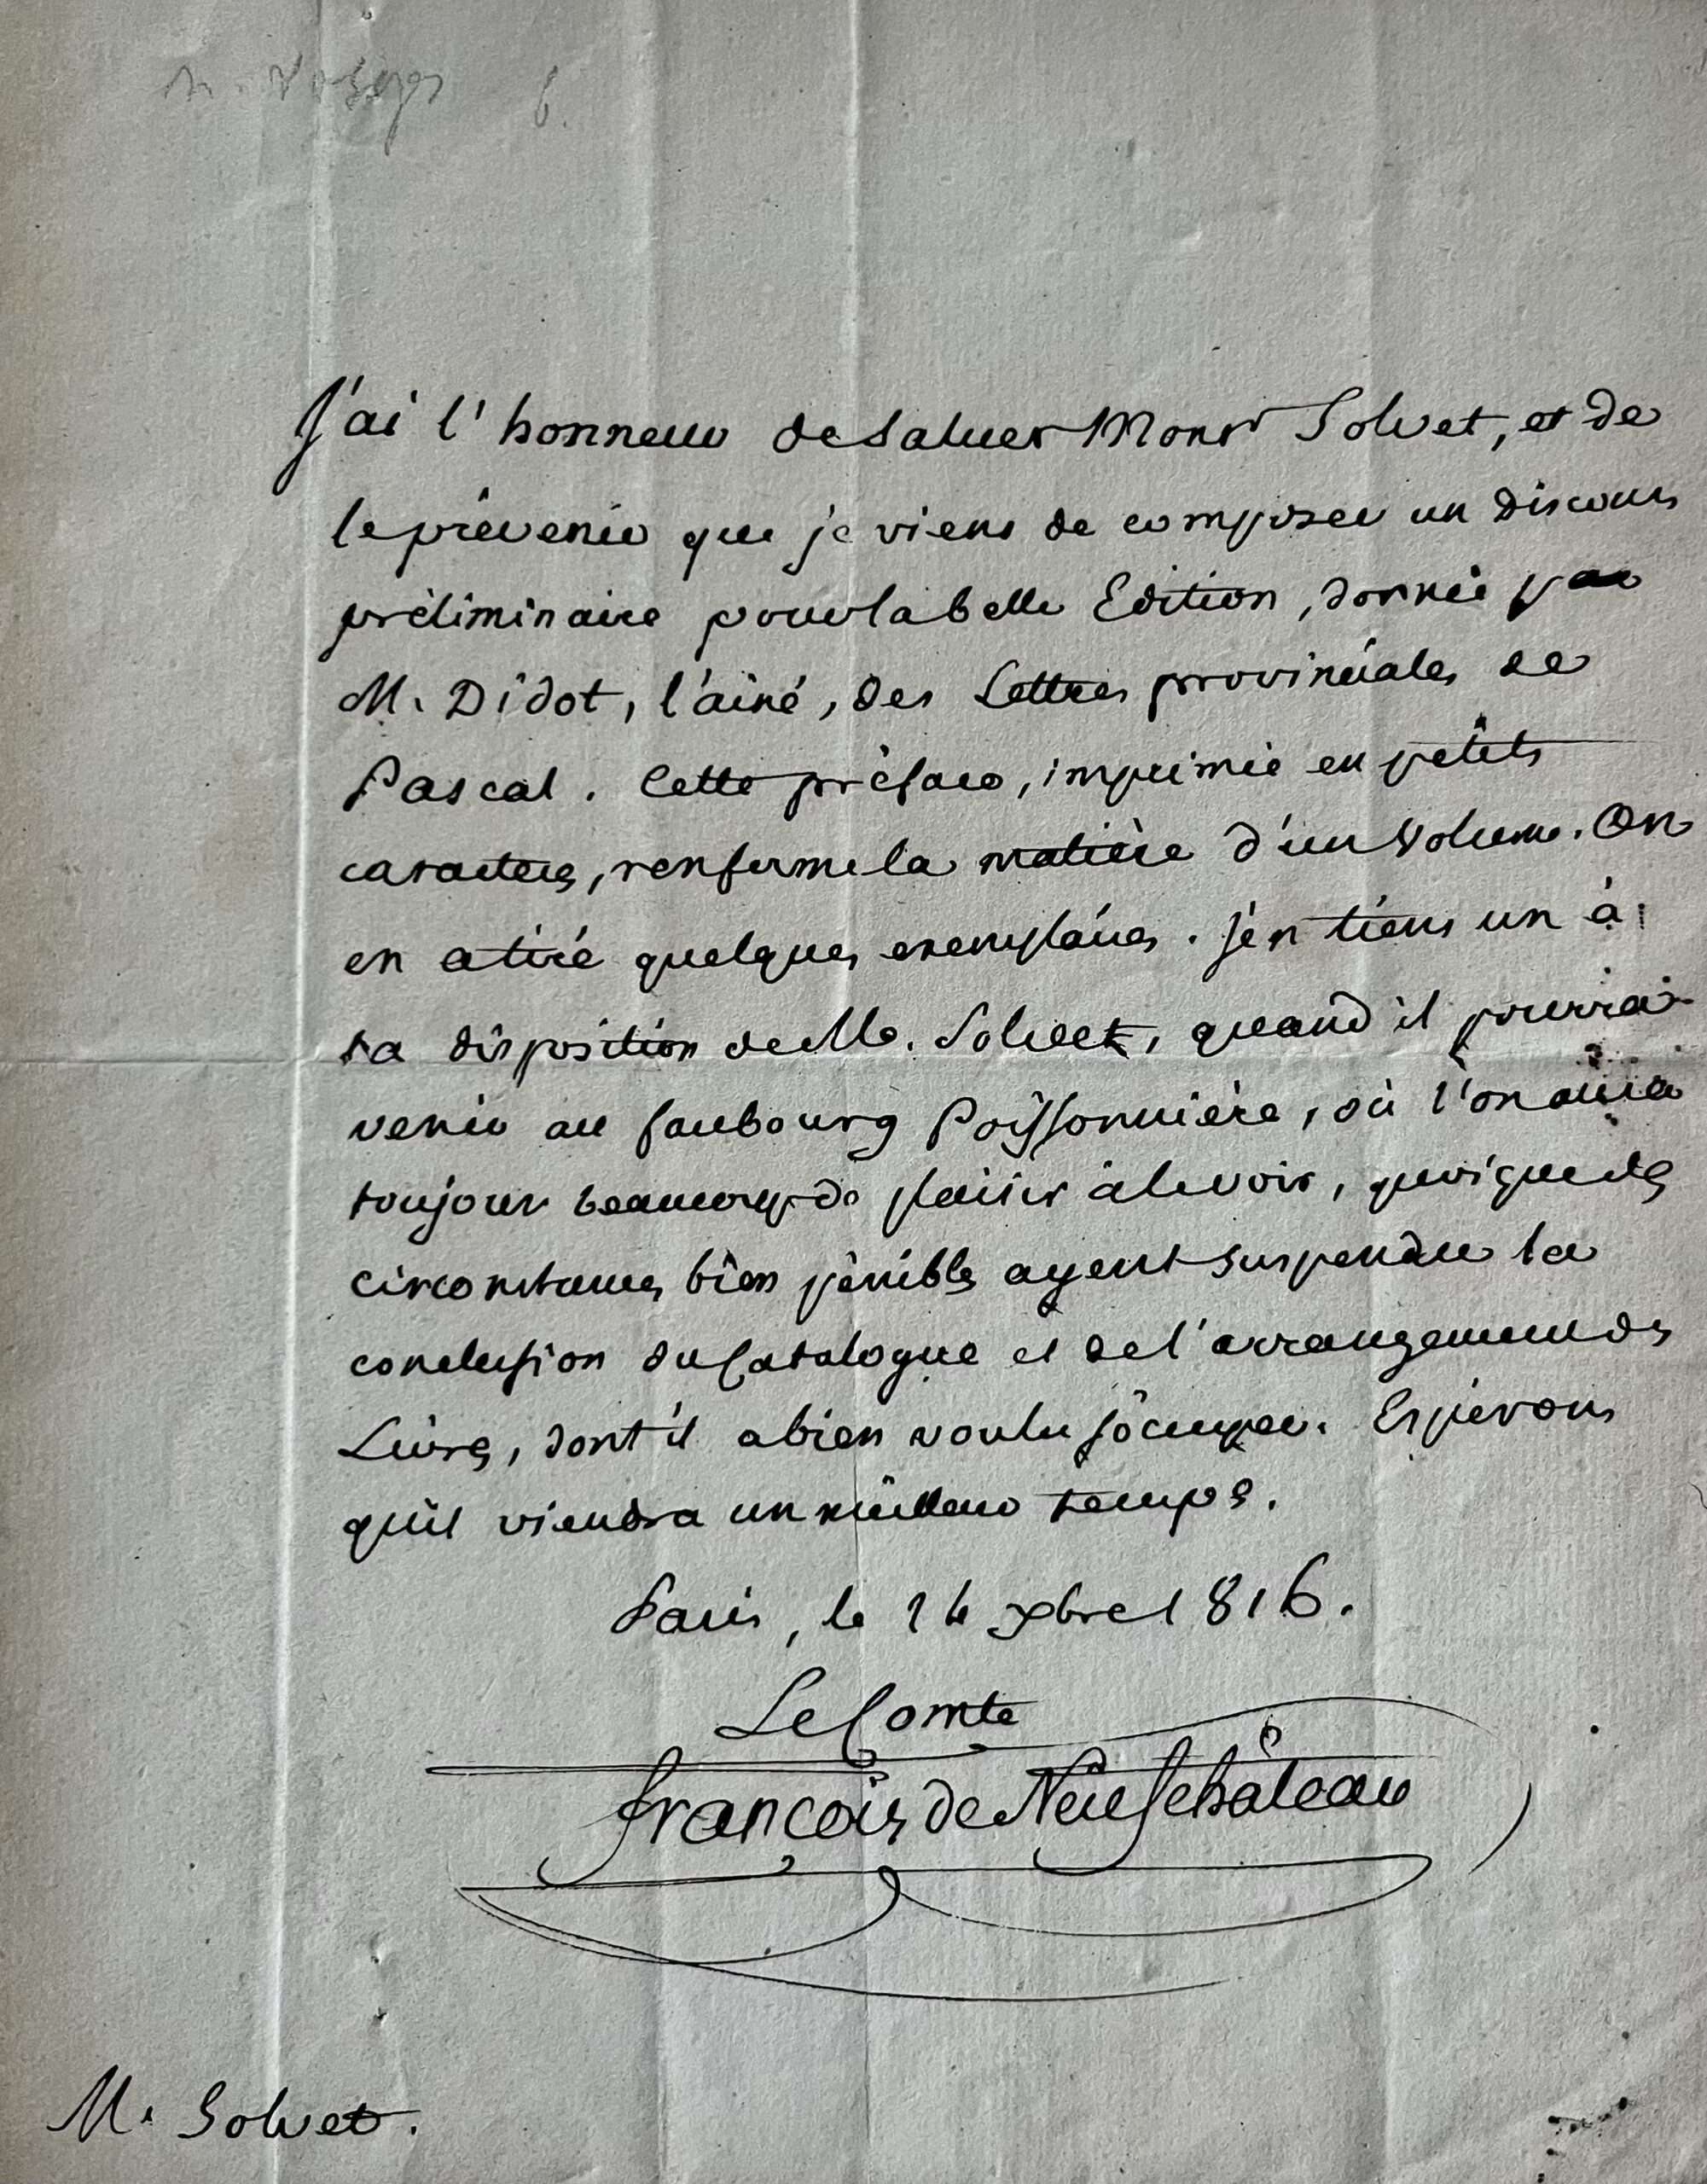 J'ai l'honneur de saluer Monsr Solvet, et de
le prévenir que je viens de composer un Discours
préliminaire pour la belle Edition, donnée par
M. Didot, l'ainé, des Lettres provinciales de
Pascal. Cette préface, imprimée en petits
caracteres, renferme la matière d'un Volume. On
en a tiré quelques exemplaires. J'en tiens un à
la disposition de M. Solvet, quand il pourra
venir au faubourg Poissonnière, où l'on aura
toujours beaucoup de plaisir à le voir, quoique des
circonstances bien pénibles ayent suspendu la
conclusion du Catalogue et de l'arrangement des
Livres, dont il a bien voulu s'occuper. Espérons
qu'il viendra un meilleur temps.
Paris, le 14 xbre 1816.
Le Comte
François de Neufchâteau
M. Solvet.